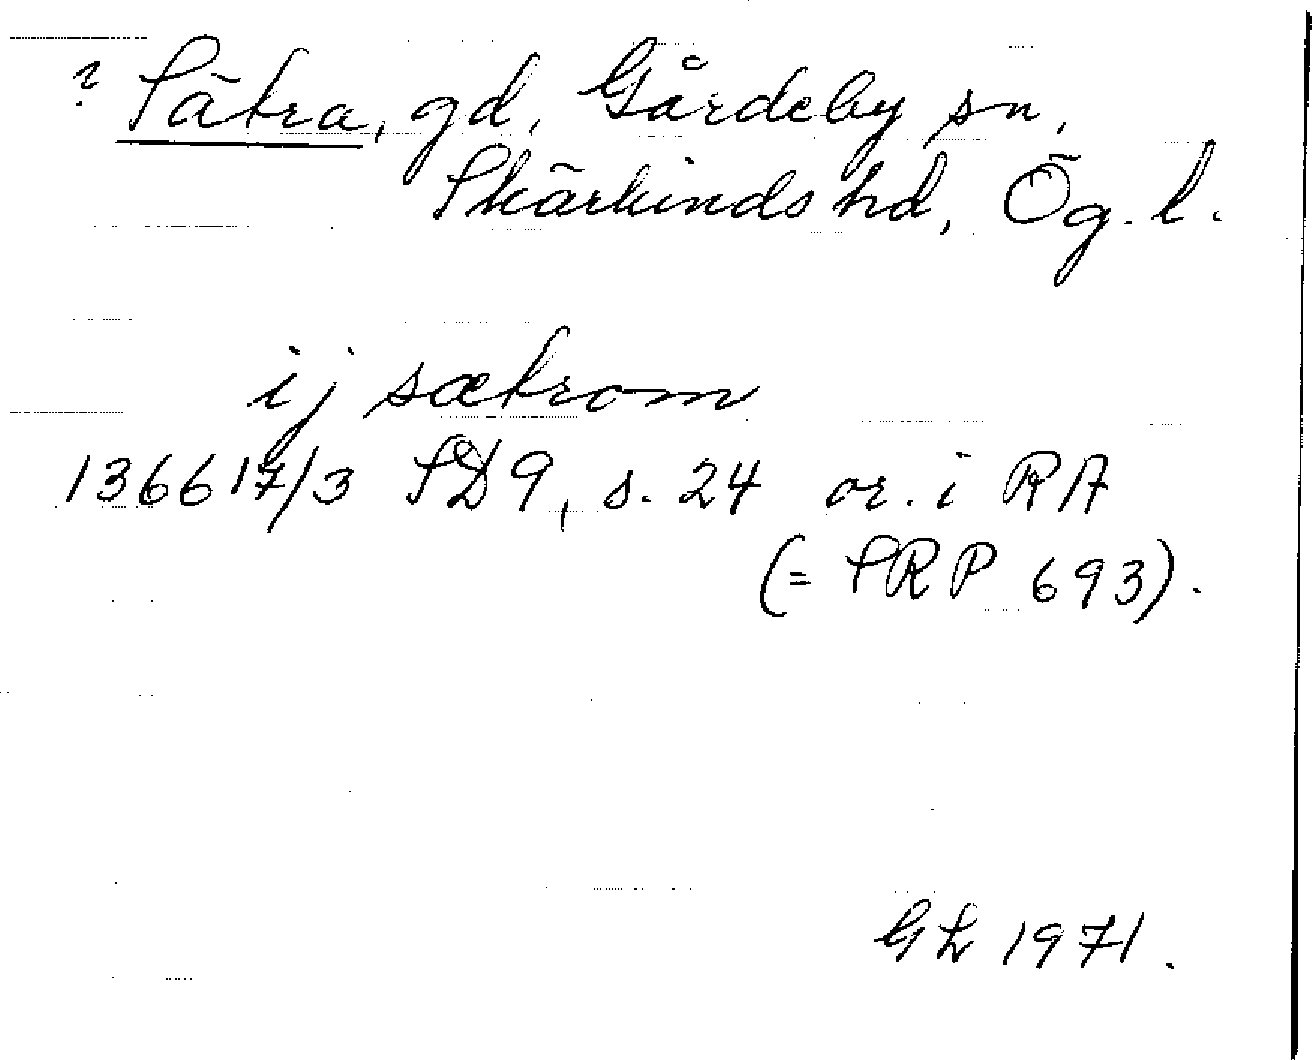 ? Sätra, gd, Gårdeby sn,
Skärkinds hd, Ög. l.
ij sætrom
1366 17/3 SD 9, s. 24 or. i RA
(= SRP 693).
GL 1971.